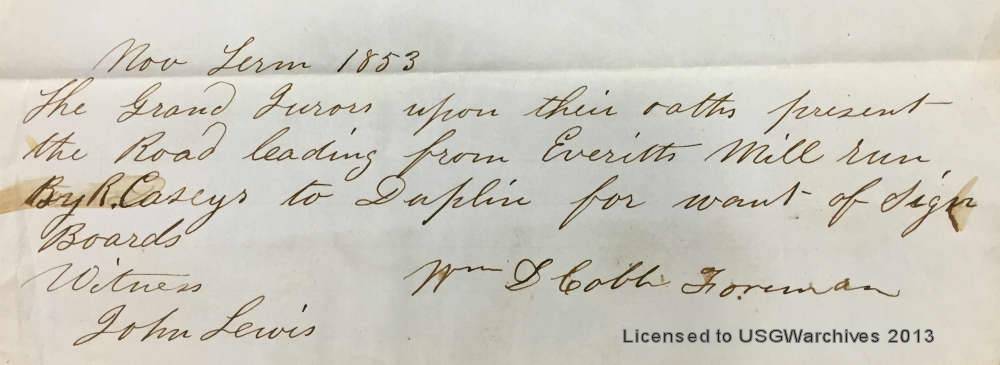 Nov Term 1853
The Grand Jurors upon their oaths present
the Road leading from Everitts Mill run
By R. Caseys to Duplin for want of Sign
Boards
Witness Wm D Cobb Foreman
John Lewis
Licensed to USGWarchives 2013